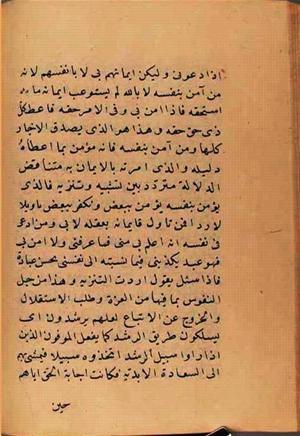 اذا دعونى وليكن ايمانهم بى لا بانفسهم لانه
من آمن بنفسه لا بالله لم يستوعب ايمانه ما
استحقه فاذا امن بى وفى الامر حقه فاعط كل
ذى حق حقه وهذا هو الذى يصدق الاخبار
كلها ومن آمن بنفسه فانه مؤمن بما اعطاه
دليله والذى امرته بالايمان به متناقض
الدلالة متردد بين تشبيه وتنزيه فالذى
يؤمن بنفسه يؤمن ببعض ونكفر ببعض تاويلا
لا ردا فمن تاول فايمانه بعقله لا بى ومن ادعى
فى نفسه انه اعلم بى منى فما عرفنى ولا امن بى
فهو عبد يكذبنى فيما نسبته الى نفسى بحسن عبارة
فاذا سئل يقول اردت التنزيه وهذا من حيل
النفوس بما فيها من العزة وطلب الاستقلال
والخروج عن الاتباع لعلهم يرشدون اى
يسلكون طريق الرشد كما يفعل الموفقون الذين
اذا راوا سبيل الرشد اتخذوه سبيلا فيمشى بهم
الى السعادة الابدية فكانت اجابة الحق اياهم
حين